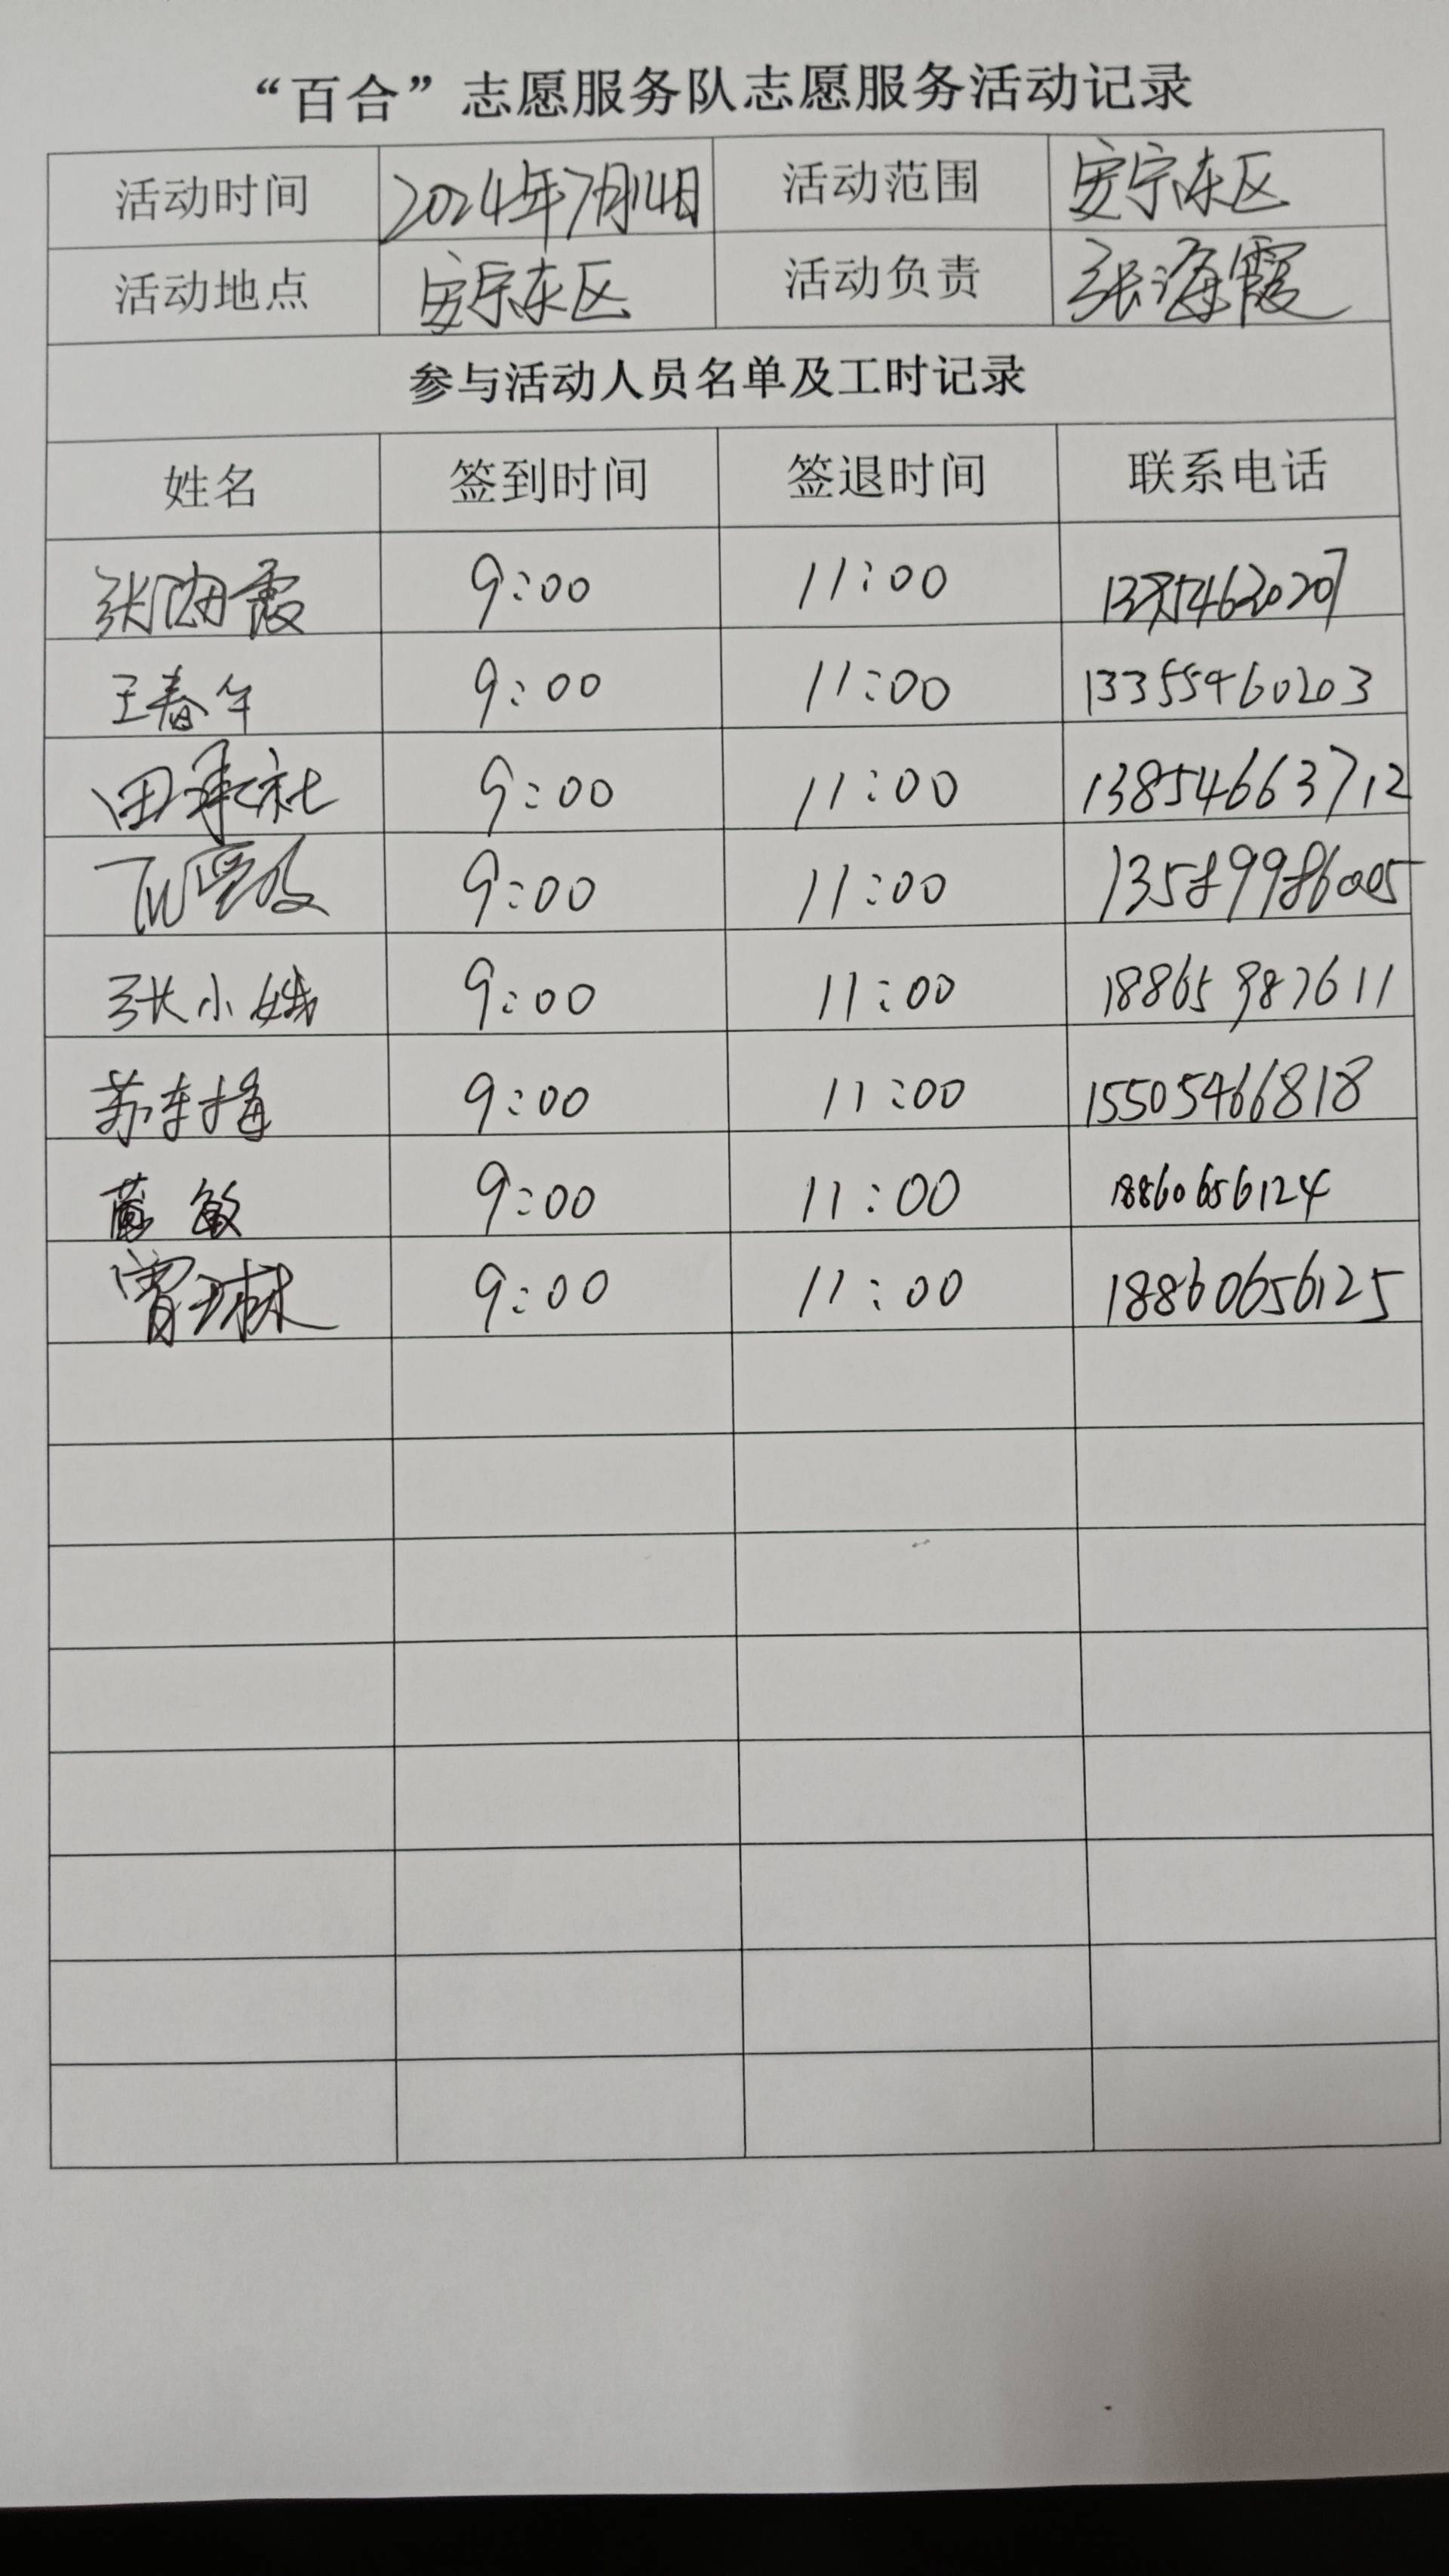 “百合”志愿服务队志愿服务活动记录
活动时间 2024年7月14日 活动范围 安宁东区
活动地点 安宁东区 活动负责 张海霞
参与活动人员名单及工时记录
姓名 签到时间 签退时间 联系电话
张海霞 9:00 11:00
王春午 9:00 11:00 13355460203
田承社 9:00 11:00 13854663712
9:00 11:00 13589986005
张小娥 9:00 11:00 18865987611
苏 梅 9:00 11:00 15505466818
敏 9:00 11:00 18860656124
9:00 11:00 18860656125